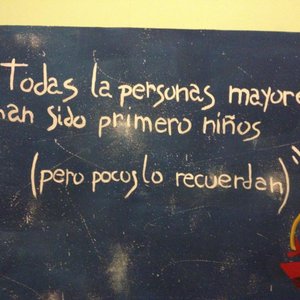 Todas la personas mayore
han sido primero niños
(pero pocos lo recuerdan)